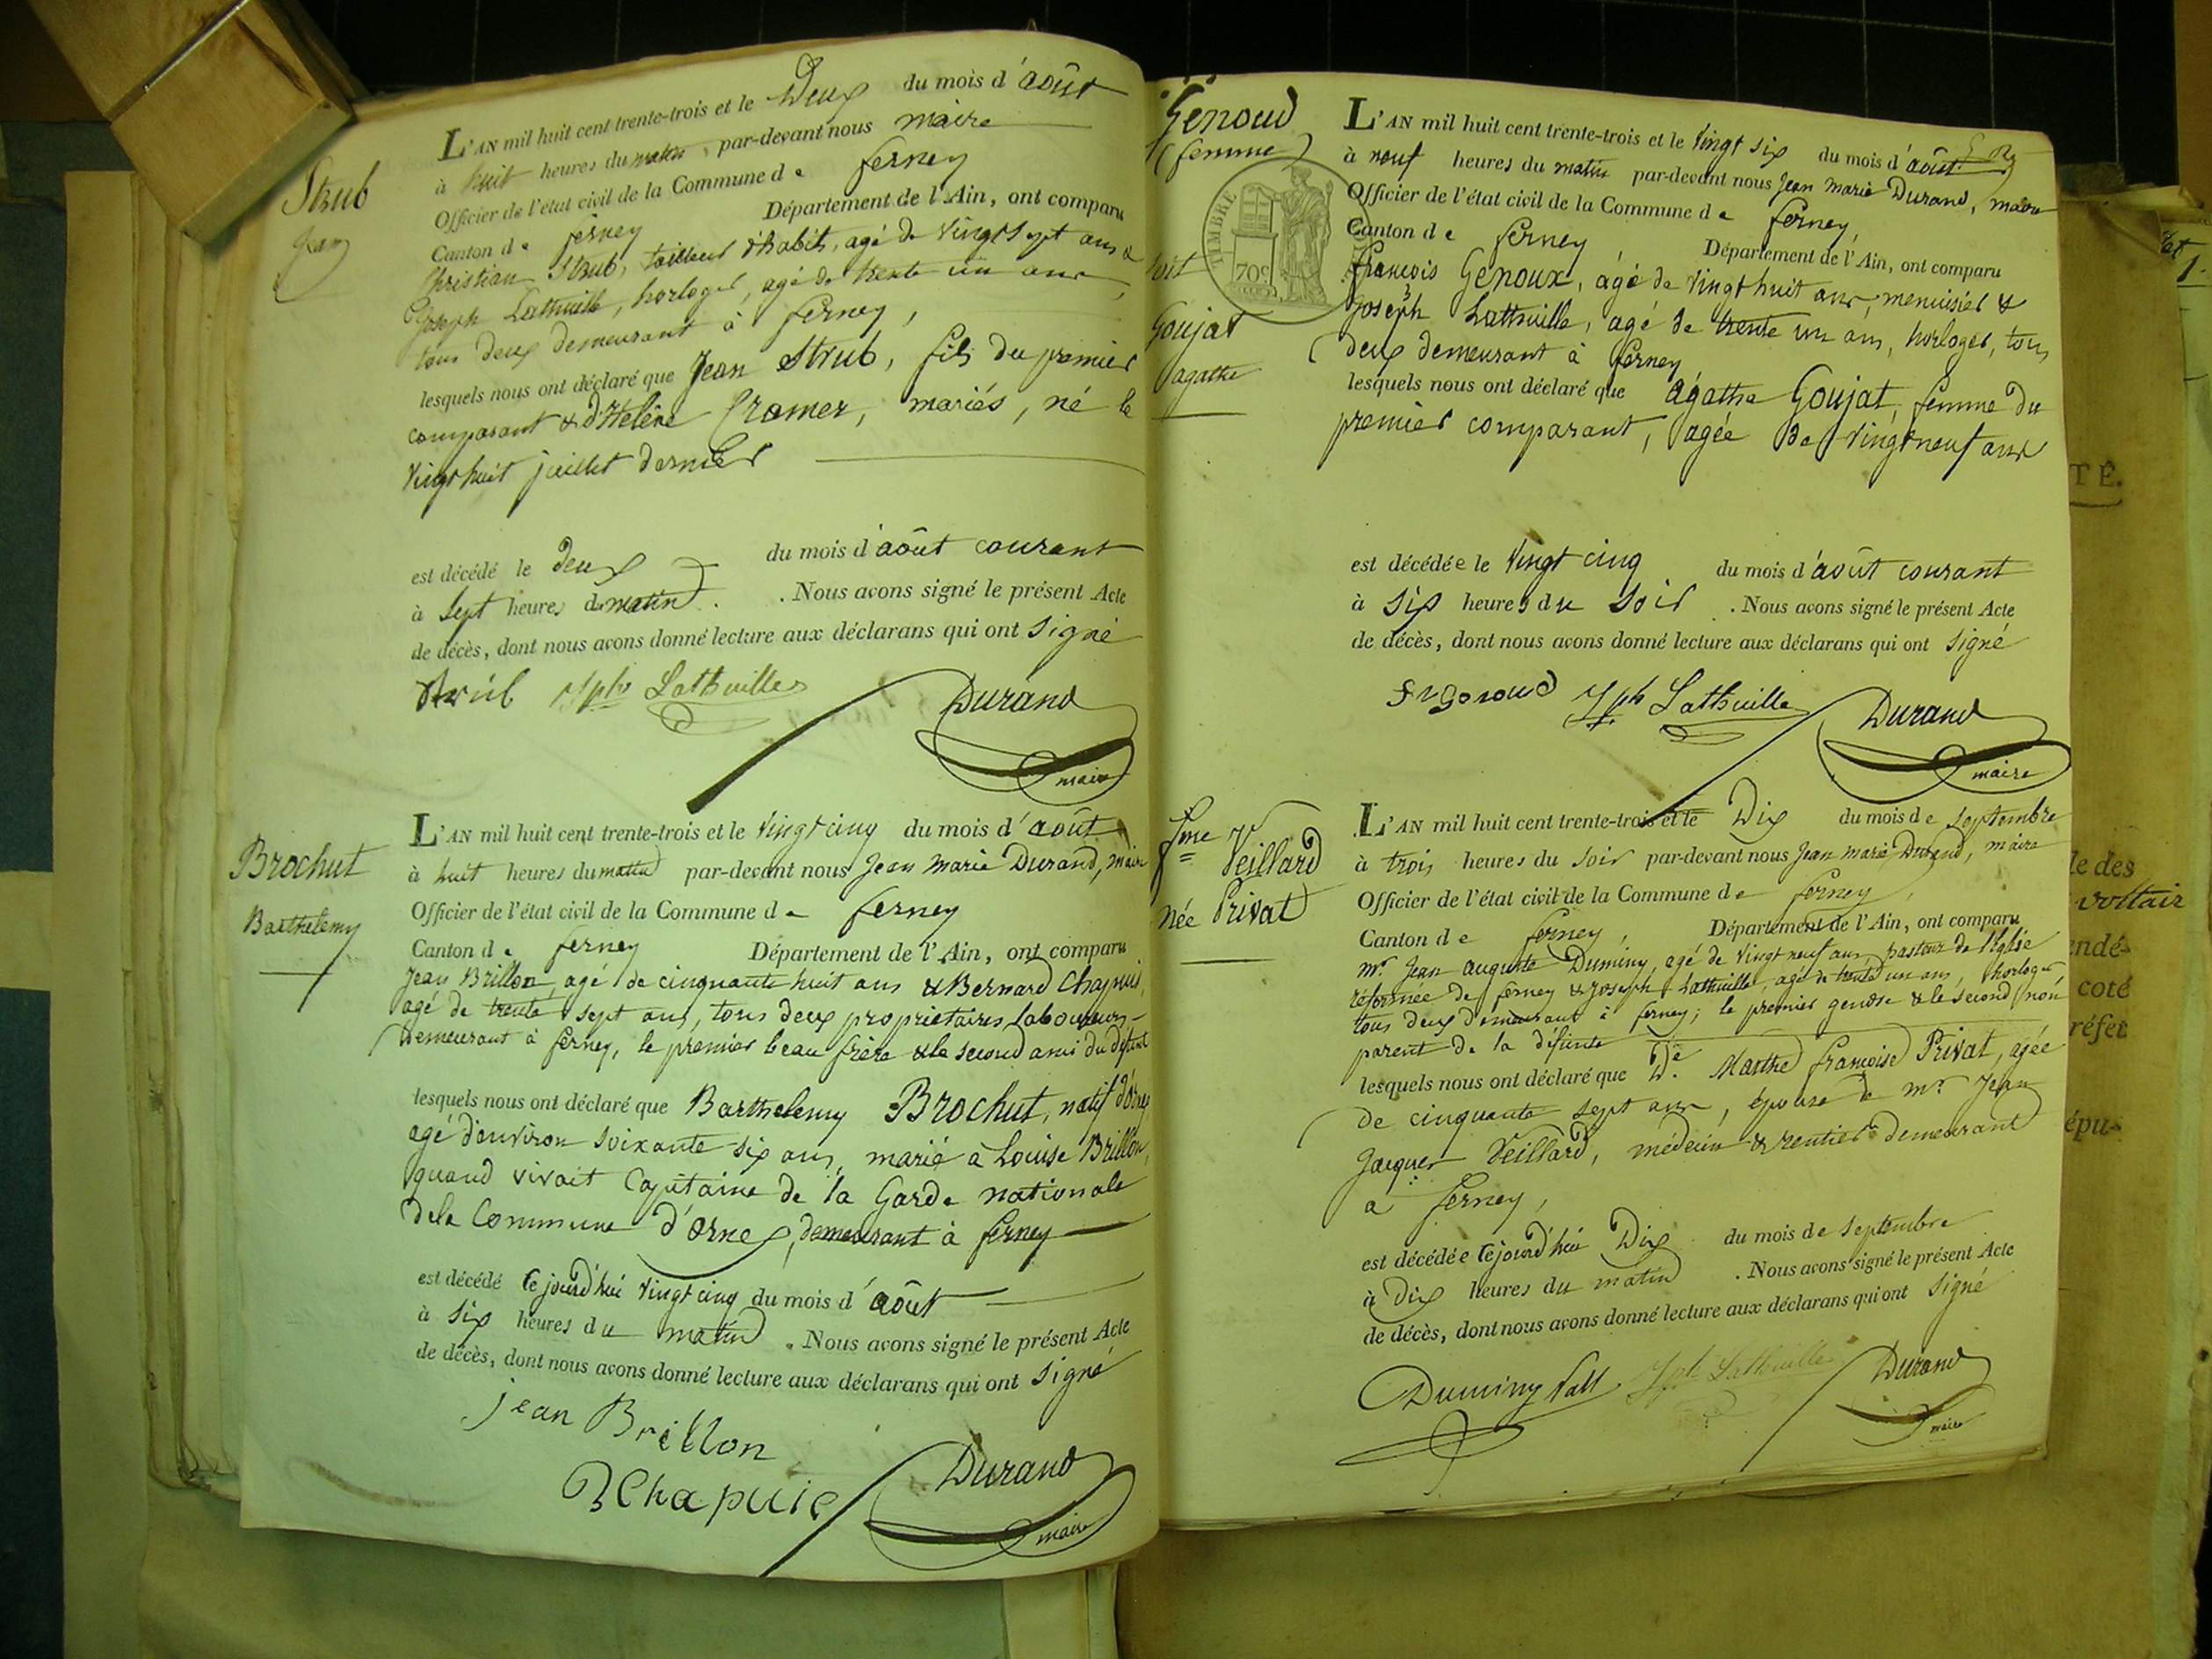 Strub
Jean
L'AN mil huit cent trente-trois et le Deux du mois d'août
à huit heures du matin, par-devant nous maire
Officier de l'état civil de la Commune de ferney
Canton de ferney Département de l'Ain, ont comparu
Christian Strub, tailleur d'habits, agé de vingt sept ans &
Joseph Lathuille, horloger, agé de trente un ans,
tous deux demeurant à ferney,
lesquels nous ont déclaré que Jean Strub, fils du premier
comparant & d'Helène Cramer, mariés, né le
vingt huit juillet dernier
est décédé le deux du mois d'août courant
à sept heures du matin. Nous avons signé le présent Acte
de décès, dont nous avons donné lecture aux déclarans qui ont signé
Jph Lathuille Durand
maire
Brochut
Barthelemy
L'AN mil huit cent trente-trois et le vingt cinq du mois d'août
à huit heures du matin par-devant nous Jean Marie Durand, maire
Officier de l'état civil de la Commune de ferney
Canton de ferney Département de l'Ain, ont comparu
Jean Brillon agé de cinquante huit ans & Bernard Chapuis,
agé de trente sept ans, tous deux proprietaires laboureurs
demeurant à ferney, le premier beau frère & le second ami du défunt
lesquels nous ont déclaré que Barthelemy Brochut, natif d'ornex
agé d'environ soixante six ans, marié à Louise Brillon,
quand vivait Capitaine de la Garde nationale
de la Commune d'Ornex, demeurant à ferney
est décédé cejourd'hui vingt cinq du mois d'août
à six heures du matin. Nous avons signé le présent Acte
de décès, dont nous avons donné lecture aux déclarans qui ont signé
jean Brillon
B Chapuis Durand
maire
Genoud
(femme)
TIMBRE
70c
soit
Goujat
agathe
L'AN mil huit cent trente-trois et le vingt six du mois d'août
à neuf heures du matin par-devant nous Jean Marie Durand, maire
Officier de l'état civil de la Commune de ferney,
Canton de ferney, Département de l'Ain, ont comparu
françois Genoux, âgé de vingt huit ans, menuisier &
Joseph Lathuille, agé de trente un ans, horloger, tous
deux demeurant à ferney
lesquels nous ont déclaré que agathe Goujat, femme du
premier comparant, agée de vingt neuf ans
est décédée le vingt cinq du mois d'août courant
à six heures du soir. Nous avons signé le présent Acte
de décès, dont nous avons donné lecture aux déclarans qui ont signé
Jph Lathuille Durand
maire
fme Veillard
née Privat
L'AN mil huit cent trente-trois et le Dix du mois de septembre
à trois heures du soir par-devant nous Jean Marie Durand, maire
Officier de l'état civil de la Commune de ferney,
Canton de ferney, Département de l'Ain, ont comparu
mr. Jean auguste Duminy, agé de vingt neuf ans pasteur de l'Eglise
réformée de ferney & Joseph Lathuille, agé de trente un ans, horloger,
tous deux demeurant à ferney; le premier gendre & le second non
parent de la défunte
lesquels nous ont déclaré que De. Marthe françoise Privat, agée
de cinquante sept ans, épouse de mr. Jean
Jacques Veillard, médecin & rentier demeurant
à ferney,
est décédée cejourd'hui Dix du mois de septembre
à Dix heures du matin. Nous avons signé le présent Acte
de décès, dont nous avons donné lecture aux déclarans qui ont signé
Duminy Jph Lathuille Durand
maire
TÉ.
le des
voltair
coté
épu-